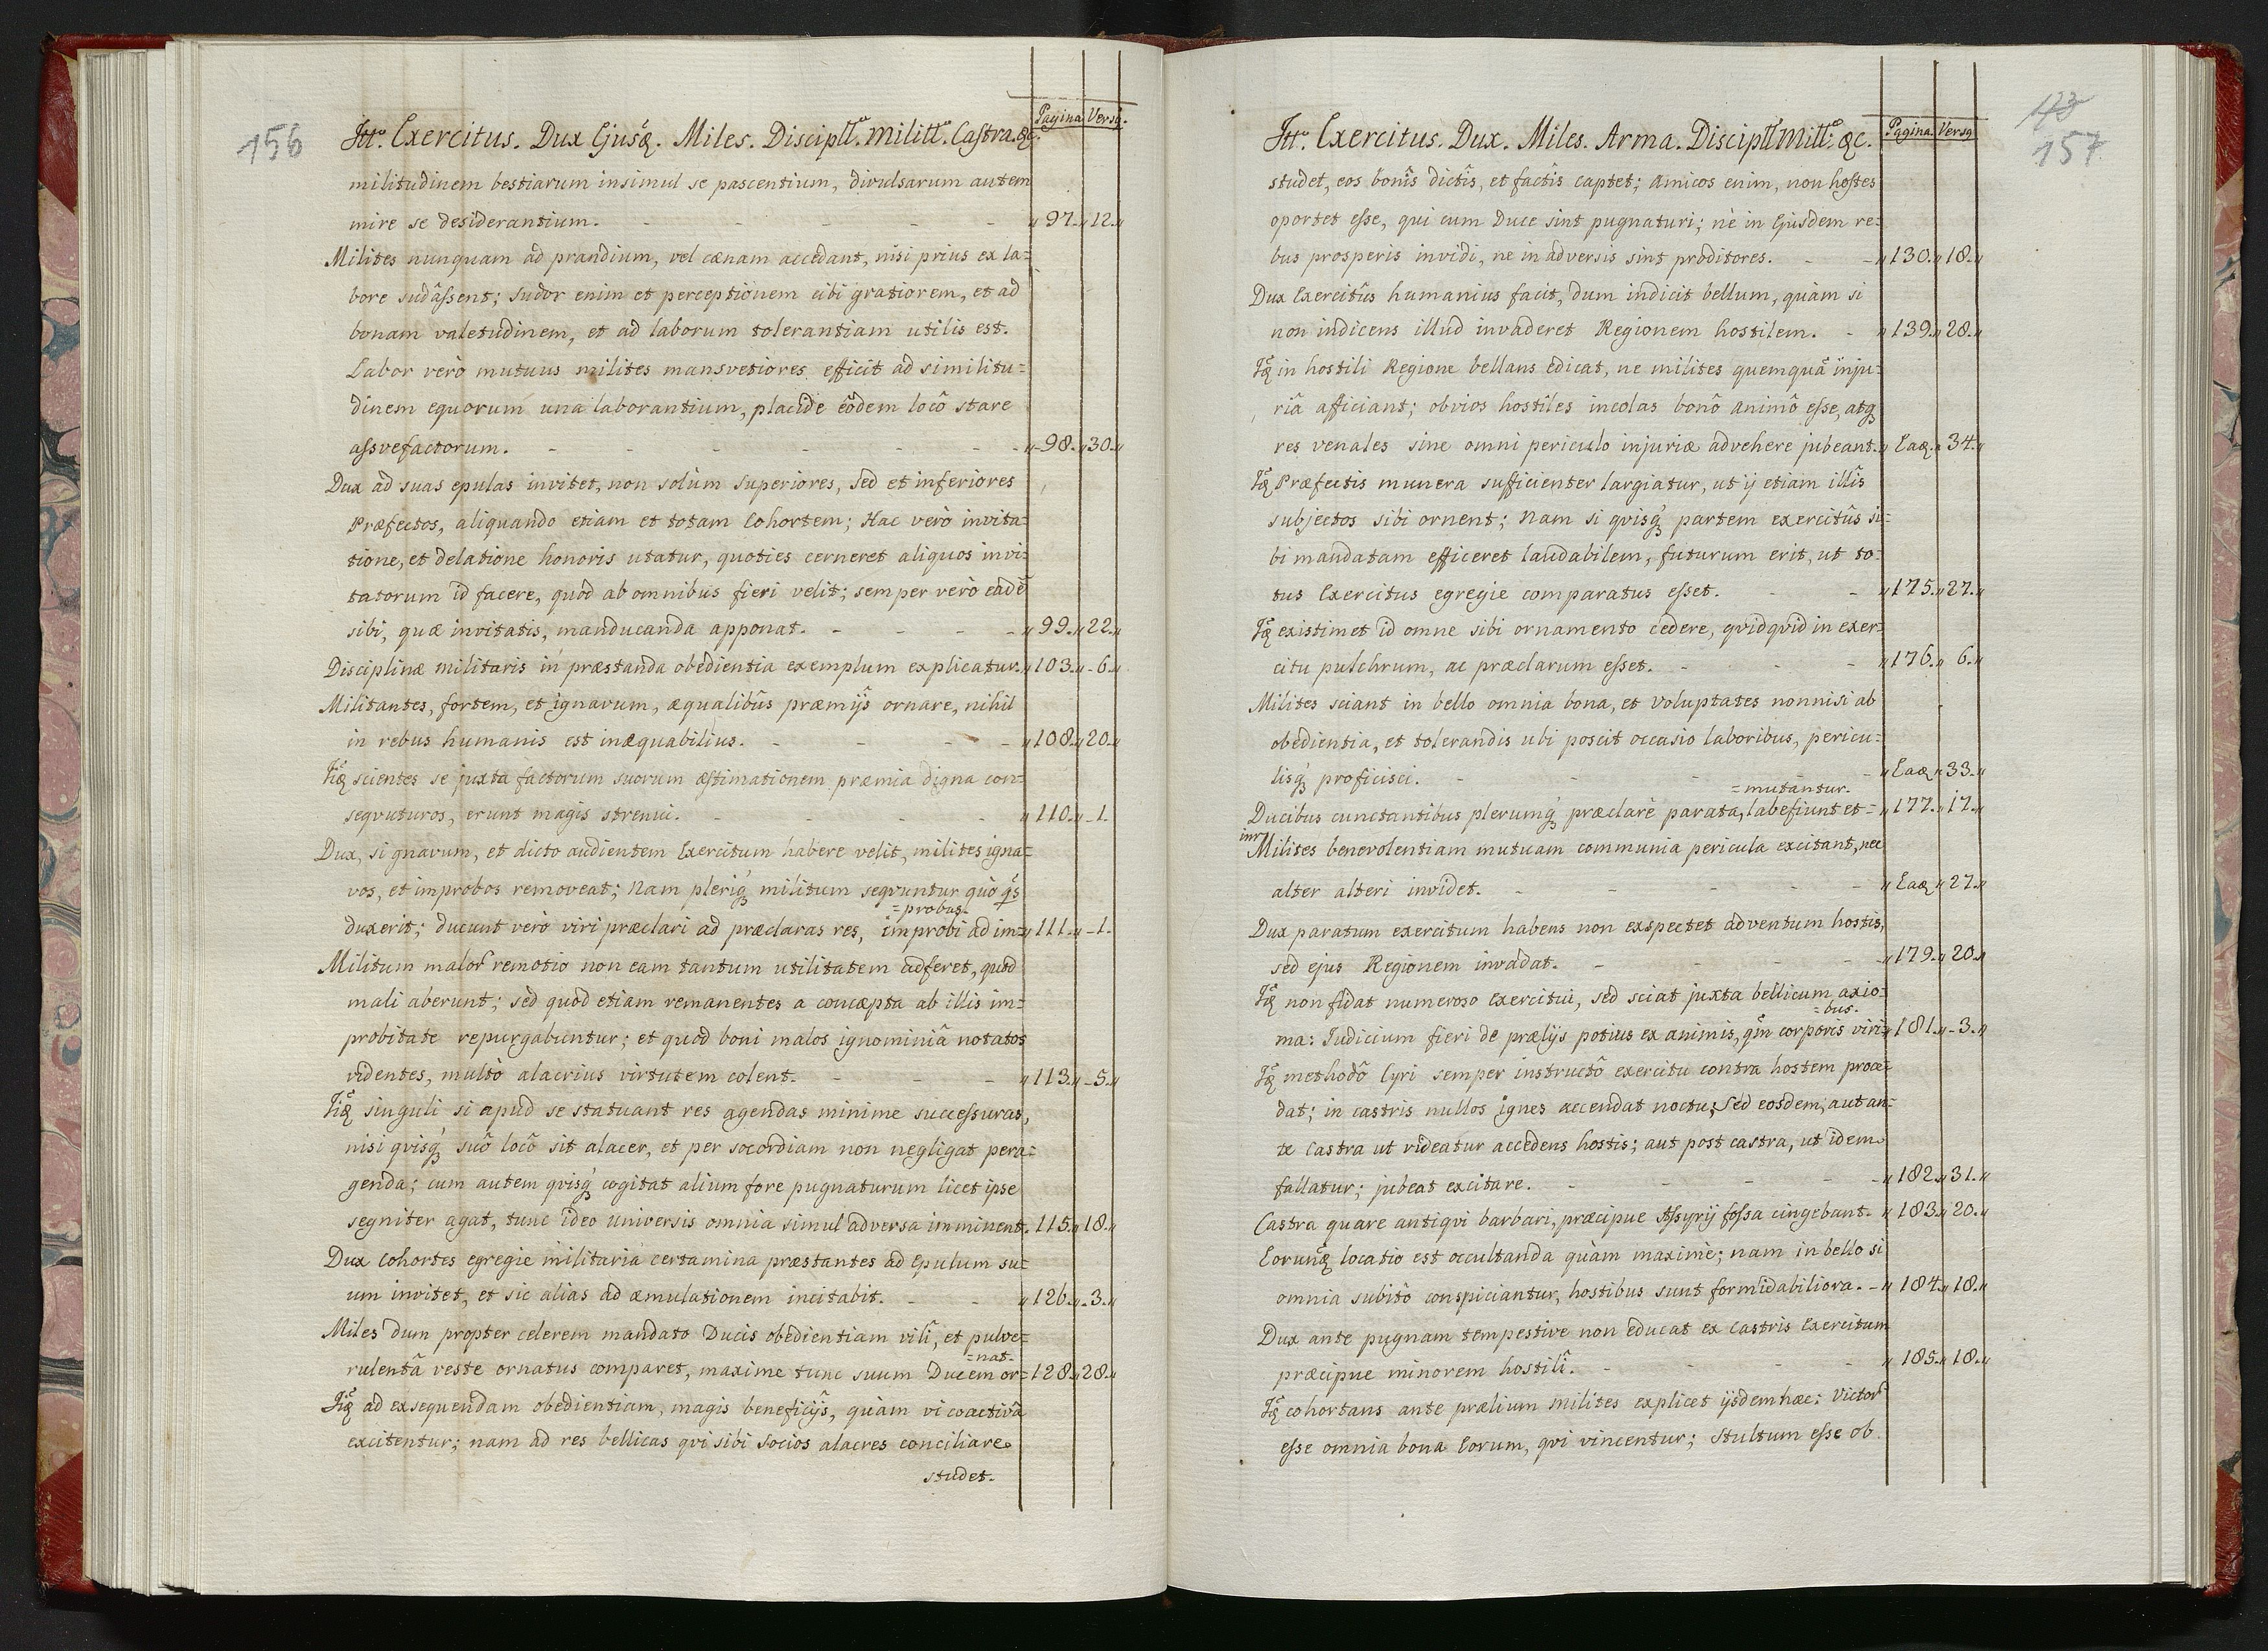 156
Itt. Exercitus. Dux Ejusq̃. Miles. Discipll. Militt. Castra. &c.
Pagina Versq.
militudinem bestiarum insimul se pascentium, divulsarum autem
mire se desiderantium. - - - - - „ 97. „ 12. „
Milites nunquam ad prandium, vel cænam accedant, nisi prius ex la=
bore sudâssent; sudor enim et perceptionem cibi gratiorem, et ad
bonam valetudinem, et ad laborum tolerantiam utilis est.
Labor verò mutuus milites mansvetiores efficit ad similitu=
dinem equorum una laborantium, placide eôdem locô stare
assvefactorum. - - - - - - „ 98. „ 30. „
Dux ad suas epulas invitet, non solùm superiores, sed et inferiores
Præfectos, aliquando etiam et totam Cohortem; Hac verò invita=
tione, et delatione honoris utatur, quoties cerneret aliquos invi=
tatorum id facere, quod ab omnibus fieri velit; semper verò eadẽ
sibi, quæ invitatis, manducanda apponat. - - - - „ 99. „ 22. „
Disciplinæ militaris in præstanda obedientia exemplum explicatur. „ 103. „ 6. „
Militantes, fortem, et ignavum, æqualibûs præmijs ornare, nihil
in rebus humanis est inæquabilius. - - - - „ 108. „ 20. „
Iiq̃ scientes se juxta factorum suorum æstimationem præmia digna con=
seqvuturos, erunt magis strenui. - - - - „ 110. „ 1.
Dux, si gnavum, et dicto audientem Exercitum habere velit, milites igna=
vos, et improbos removeat; Nam pleriq́ militum seqvuntur quò q̃s
=probas.
duxerit; ducunt verò viri præclari ad præclaras res, improbi ad im= „ 111. „ 1.
Militum malor̃ remotio non eam tantum utilitatem adferet, quod
mali aberunt; sed quod etiam remanentes a concæpta ab illis im=
probitate repurgabuntur; et quod boni malos ignominiâ notatos
videntes, multò alacrius virtutem colent. - - - „ 113. „ 5. „
Iiq̃ singuli si apud se statuant res agendas minime successuras,
nisi qvisq́ suô locô sit alacer, et per socordiam non negligat pera=
genda; cum autem qvisq́ cogitat alium fore pugnaturum licet ipse
segniter agat, tunc ideo universis omnia simul adversa imminent. 115. „ 18. „
Dux cohortes egregie militaria certamina præstantes ad epulum su=
um invitet, et sic alias ad æmulationem incitabit. - - „ 126. „ 3. „
Miles dum propter celerem mandato Ducis obedientiam vili, et pulve=
=nat.
rulentâ veste ornatus comparet, maxime tunc suum Ducem or= 128. „ 28. „
Iiq̃ ad exsequendam obedientiam, magis beneficijs, quàm vi coactivâ
excitentur; nam ad res bellicas qvi sibi socios alacres conciliare
studet.
157
Itt. Exercitus. Dux. Miles. Arma. Discipll. Mill. &c.
Pagina Versq
studet, eos bonîs dictîs, et factîs captet; amicos enim, non hostes
oportet esse, qui cum Duce sint pugnaturi; nè in Ejusdem re=
bus prosperis invidi, ne in adversis sint proditores. - - „ 130. „ 18. „
Dux Exercitûs humanius facit, dum indicit bellum, quàm si
non indicens illud invaderet Regionem hostilem. - „ 139. „ 28. „
Iq̃ in hostili Regione bellans edicat, ne milites quemquã inju=
riâ afficiant; obvios hostiles incolas bonô animô esse, atq
res venales sine omni periculo injuriæ advehere jubeant. „ Eaq. „ 34. „
Iq̃ Præfectis munera sufficienter largiatur, ut ij etiam illîs
subjectos sibi ornent; Nam si qvisq́ partem exercitûs si=
bi mandatam efficeret laudabilem, futurum erit, ut to=
tus Exercitus egregie comparatus esset. - - „ 175. „ 27. „
Iq̃ existimet id omne sibi ornamento cedere, qvidqvid in exer=
citu pulchrum, ac præclarum esset. - - - „ 176. „ 6. „
Milites sciant in bello omnia bona, et voluptates nonnisi ab
obedientia, et tolerandis ubi poscit occasio laboribus, pericu=
lisq́ proficisci. - - - - „ Eaq „ 33. „
=mutantur.
Ducibus cunctantibus plerumq́ præclarè parata, labefiunt et= „ 177. „ 17. „
inr̃
Milites benevolentiam mutuam communia pericula excitant, nec
alter alteri invidet. - - - - - „ Eaq „ 27. „
Dux paratum exercitum habens non exspectet adventum hostis,
sed ejus Regionem invadat. - - - - „ 179. „ 20. „
Iq̃ non fidat numeroso exercitui, sed sciat juxta bellicum axio=
=bus.
ma: Iudicium fieri de prælijs potius ex animis, q̃m corporis viri= „ 181. „ 3. „
Iq̃ methodô Cyri semper instructô exercitu contra hostem proce=
dat; in castris nullos ignes accendat noctu; Sed eosdem, aut an=
te Castra ut videatur accedens hostis; aut post castra, ut idem
fallatur; jubeat excitare. - - - - - „ 182. „ 31. „
Castra quare antiqvi barbari, præcipue Assyrij fossa cingebant. „ 183. „ 20. „
Eorunq̃ locatio est occultanda quàm maximè; nam in bello si
omnia subitò conspiciantur, hostibus sunt formidabiliora. - „ 184. „ 18. „
Dux ante pugnam tempestive non educat ex Castris Exercitum
præcipue minorem hostili. - - - - „ 185. „ 18. „
Iq̃ cohortans ante prælium milites explicet ijsdem hæc: Victor̃
esse omnia bona Eorum, qvi vincentur; Stultum esse ob